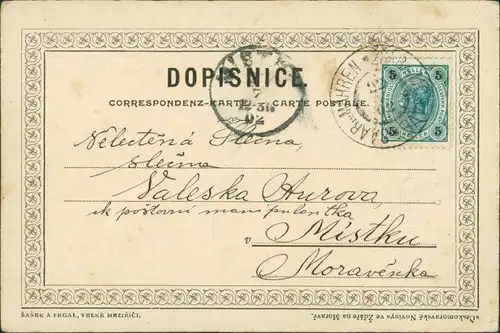 DOPISNICE.
CORRESPONDENZ-KARTE. - CARTE POSTALE.
12 3
02
5 5
5 5
Velectěná Slečna,
slečna
Valeska Aurova,
ck poštovní manipulantka
v Místku
Moravěnka
ŠAŠEK A FRGAL, VELKÉ MEZIŘÍČÍ.
»Českomoravské Noviny« ve Žďáře na Moravě.